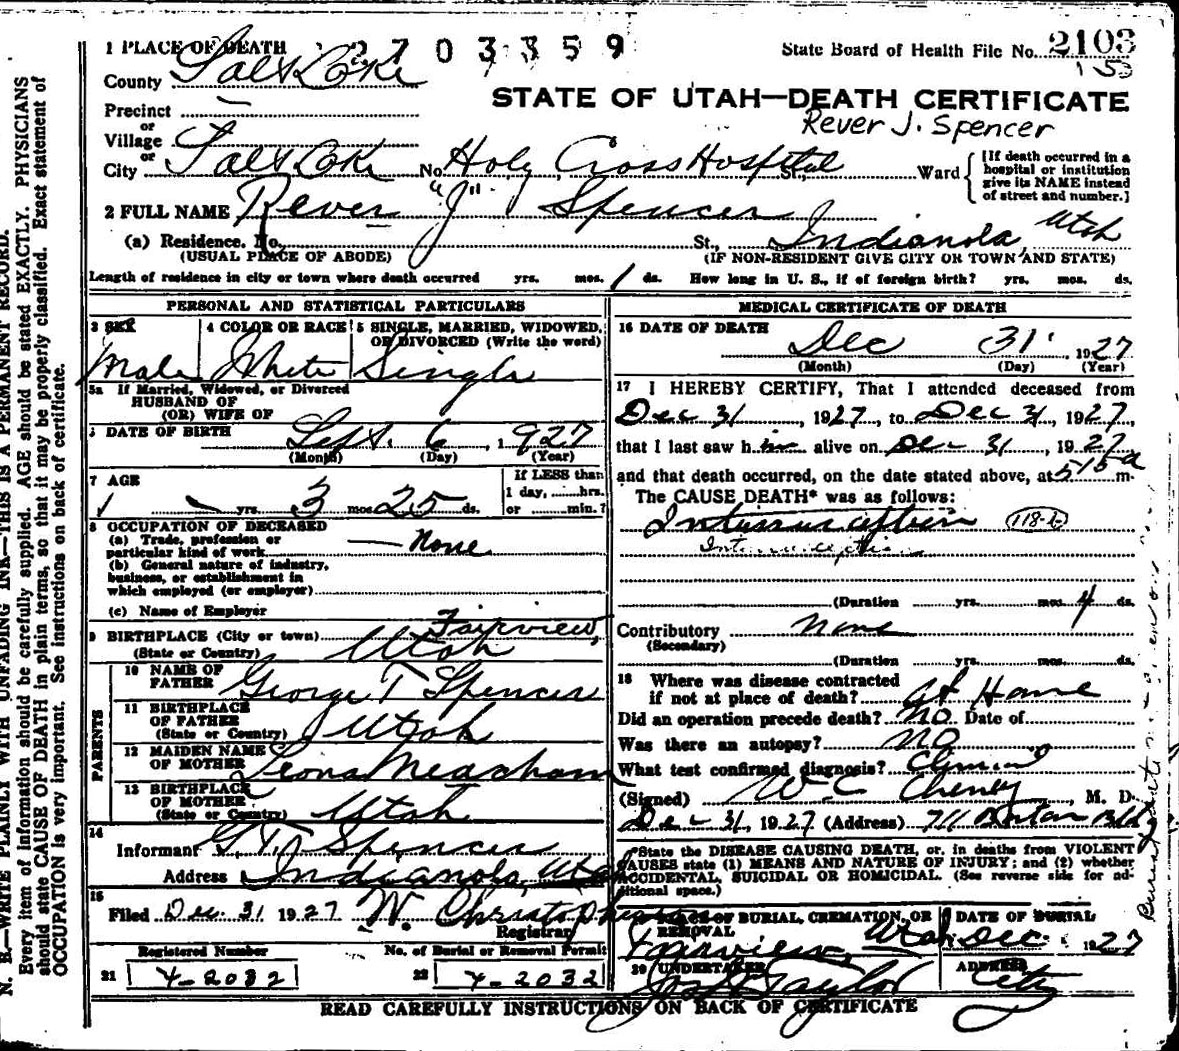 1 PLACE OF DEATH
2703359
State Board of Health File No. 2103
County Salt Lake
STATE OF UTAH—DEATH CERTIFICATE
Precinct
Rever J. Spencer
or
Village
or
City Salt Lake No. Holy Cross Hospital St., Ward
[If death occurred in a
hospital or institution
give its NAME instead
of street and number.]
2 FULL NAME Rever "J" Spencer
(a) Residence. No. St., Indianola, Utah
(USUAL PLACE OF ABODE) (IF NON-RESIDENT GIVE CITY OR TOWN AND STATE)
Length of residence in city or town where death occurred yrs. mos. 1 ds. How long in U. S., if of foreign birth? yrs. mos. ds.
PERSONAL AND STATISTICAL PARTICULARS
3 SEX 4 COLOR OR RACE 5 SINGLE, MARRIED, WIDOWED,
OR DIVORCED (Write the word)
Male White Single
5a If Married, Widowed, or Divorced
HUSBAND OF
(OR) WIFE OF
DATE OF BIRTH Sept. 6, 1927
(Month) (Day) (Year)
7 AGE
If LESS than
1 day, hrs.
or min.?
yrs. 3 mos. 25 ds.
8 OCCUPATION OF DECEASED
(a) Trade, profession or
particular kind of work None
(b) General nature of industry,
business, or establishment in
which employed (or employer)
(c) Name of Employer
9 BIRTHPLACE (City or town) Fairview,
(State or Country) Utah
PARENTS
10 NAME OF
FATHER George T Spencer
11 BIRTHPLACE
OF FATHER
(State or Country) Utah
12 MAIDEN NAME
OF MOTHER Leona Meacham
13 BIRTHPLACE
OF MOTHER
(State or Country) Utah
14
Informant G. T. Spencer
Address Indianola, Utah
15
Filed Dec. 31 1927 W. Christopherson
Registrar
Registered Number No. of Burial or Removal Permit
21 4-2032 22 4-2032
MEDICAL CERTIFICATE OF DEATH
16 DATE OF DEATH
Dec 31 1927
(Month) (Day) (Year)
17 I HEREBY CERTIFY, That I attended deceased from
Dec 31, 1927, to Dec 31, 1927,
that I last saw him alive on Dec 31, 1927
and that death occurred, on the date stated above, at 515a m.
The CAUSE DEATH* was as follows:
Intussusception 118-b
Intussusception
(Duration yrs. mos. 4 ds.
Contributory None
(Secondary)
(Duration yrs. mos. ds.
18 Where was disease contracted
if not at place of death? At Home
Did an operation precede death? No Date of
Was there an autopsy? No
What test confirmed diagnosis? Clinical
(Signed) W C Cheney, M. D.
Dec 31, 1927 (Address) 711 Boston Bldg
*State the DISEASE CAUSING DEATH, or, in deaths from VIOLENT
CAUSES state (1) MEANS AND NATURE OF INJURY; and (2) whether
ACCIDENTAL, SUICIDAL OR HOMICIDAL. (See reverse side for additional space.)
PLACE OF BURIAL, CREMATION, OR REMOVAL DATE OF BURIAL
Fairview, Utah Dec. 1927
20 UNDERTAKER ADDRESS
Jos. Taylor City
READ CAREFULLY INSTRUCTIONS ON BACK OF CERTIFICATE
N. B.—WRITE PLAINLY WITH UNFADING INK—THIS IS A PERMANENT RECORD.
Every item of information should be carefully supplied. AGE should be stated EXACTLY. PHYSICIANS
should state CAUSE OF DEATH in plain terms, so that it may be properly classified. Exact statement of
OCCUPATION is very important. See instructions on back of certificate.